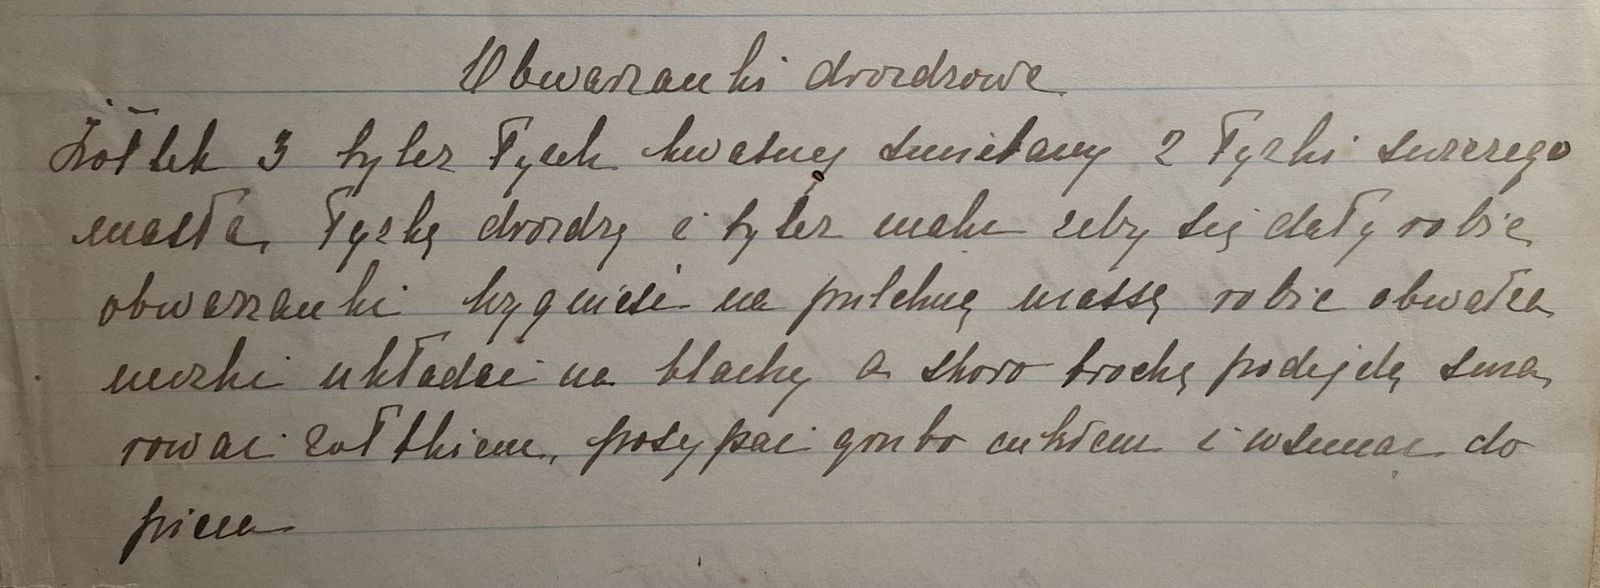 Obwarzanki drozdzowe
Żółtek 3 tylez łyżek kwasnej smietany 2 łyzki swiezego
masła, łyzkę drozdzy i tylez mąki zeby się dały robic
obwarzanki wygnieść na pulchną massę robic obwarza
neczki układać na blachy a skoro trochę podejdą sma
rowac zołtkiem, posypać grubo cukłem i wsunąc do
pieca